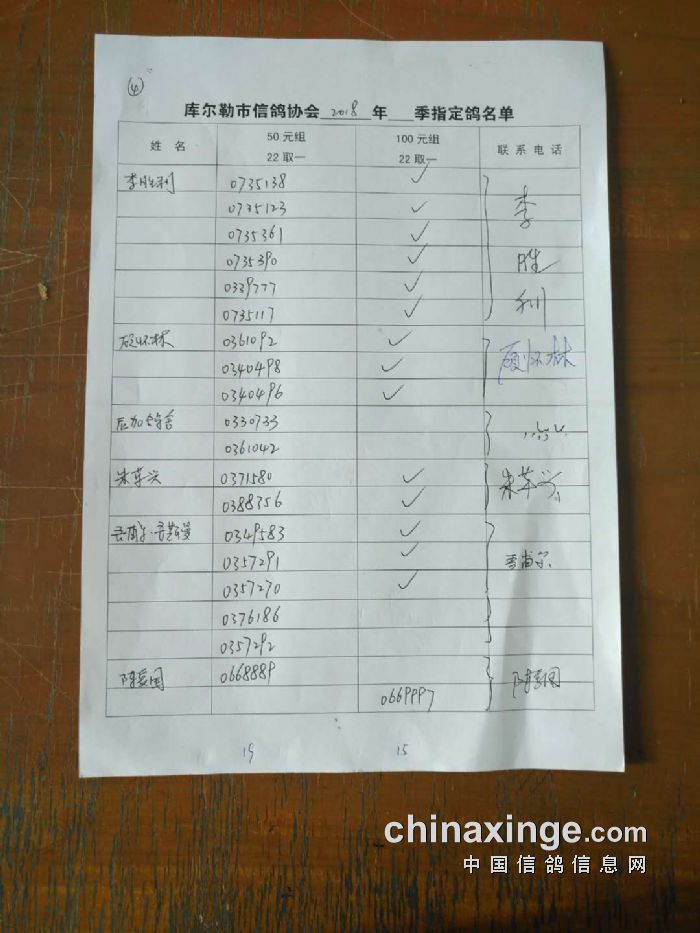 (4)
库尔勒市信鸽协会 2018 年 季指定鸽名单
姓 名 50元组 22取一 100元组 22取一 联系电话
李胜利 0735138 ✓
0735123 ✓ 李
0735361 ✓
0735390 ✓ 胜
0339777 ✓
0735117 ✓ 利
顾怀林 0361092 ✓
0340498 ✓ 顾怀林
0340496 ✓
加鸽舍 0330733
0361042
朱革兴 0371580 ✓ 朱革兴
0388356 ✓
0349583 ✓
0357291 ✓
0357270 ✓
0376186
0357292
陈爱国 0668889 陈爱国
0669997
19 15
chinaxinge.com
中国信鸽信息网